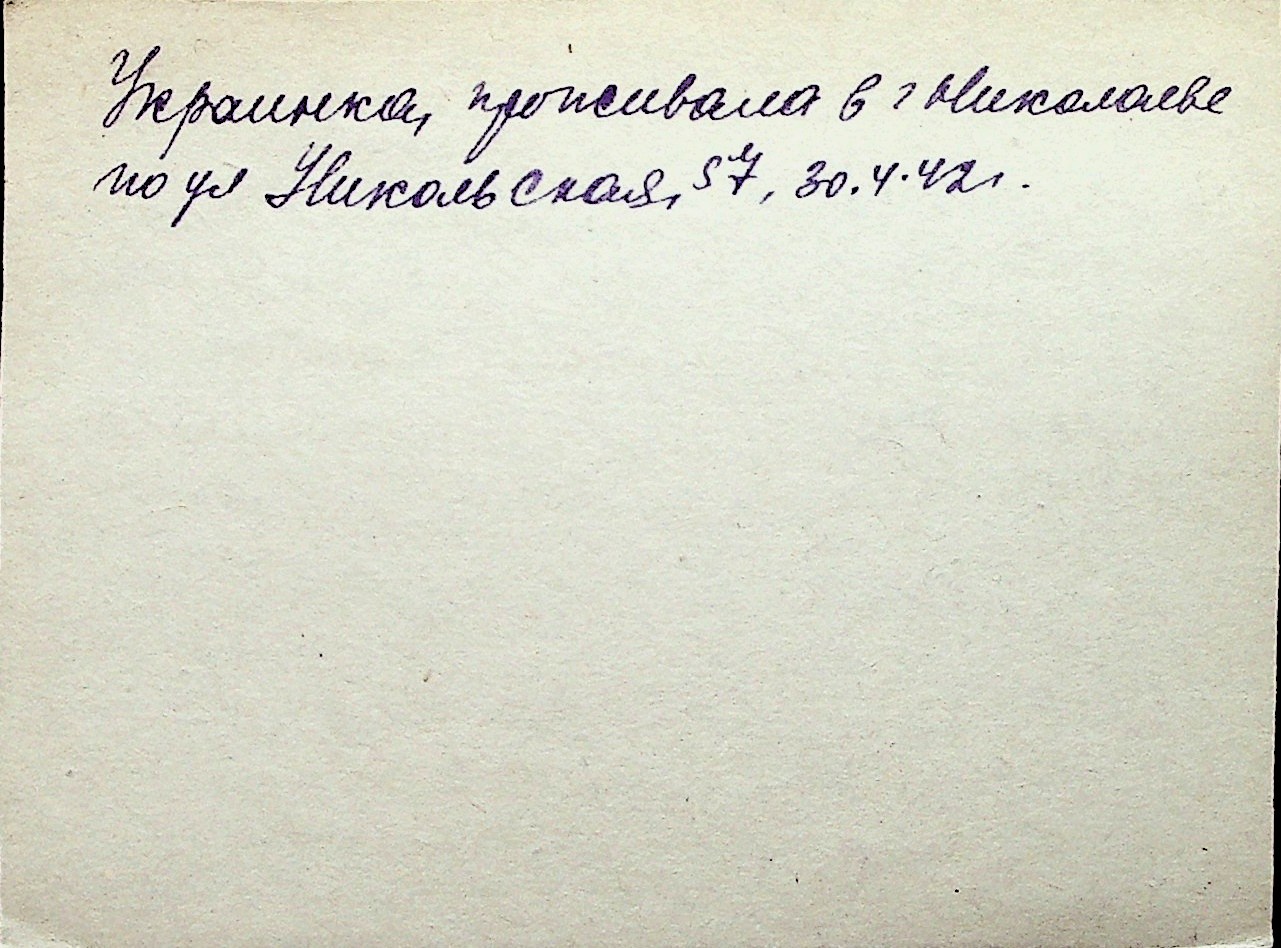 Украинка, проживала в г Николаеве
по ул Никольская, 57, 30.4.42г.